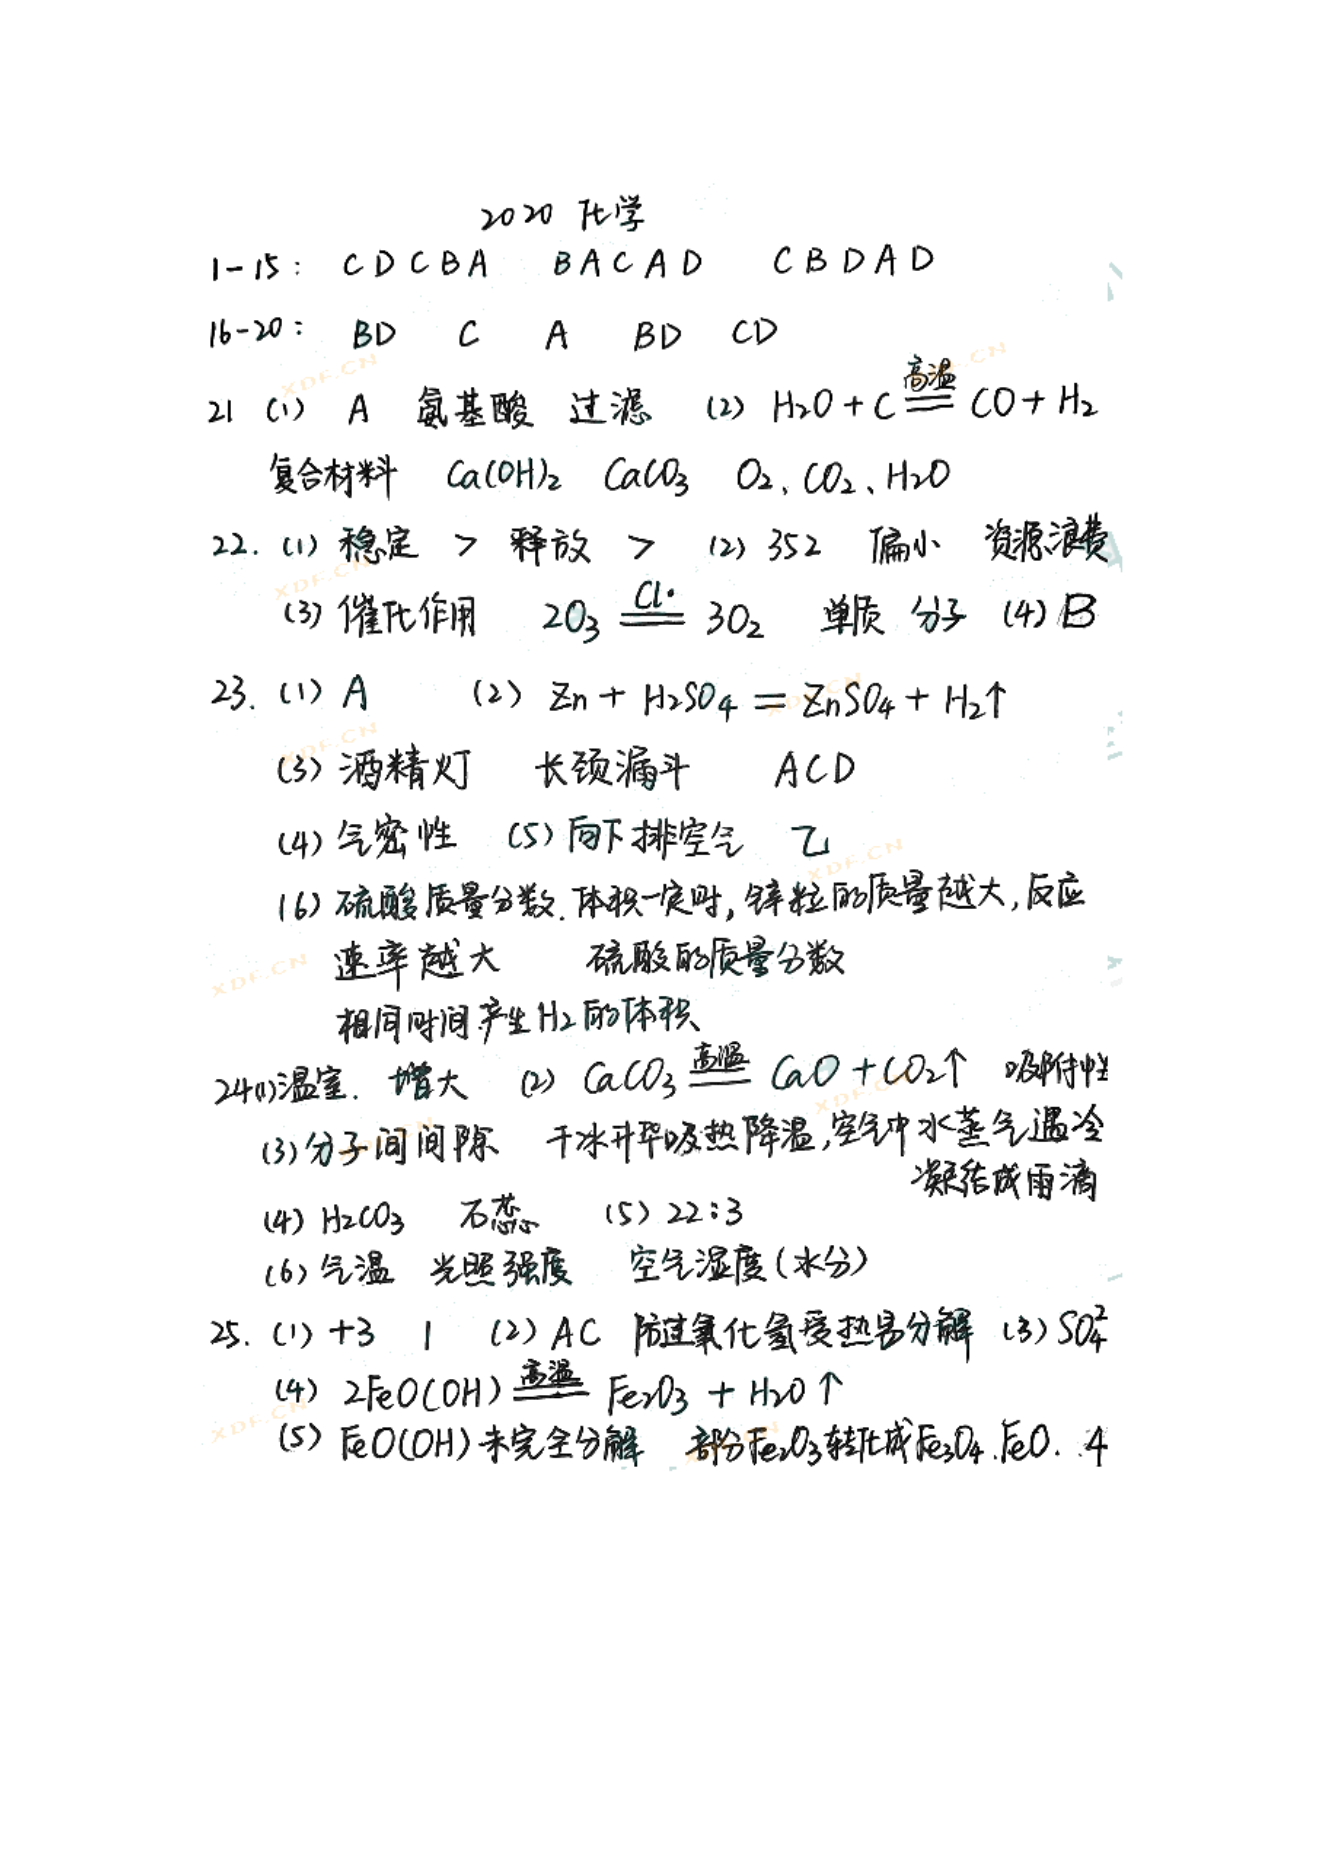 2020 化学
1-15: CDCBA BACAD CBDAD
16-20: BD C A BD CD
21 (1) A 氨基酸 过滤 (2) H₂O + C 高温═ CO + H₂
复合材料 Ca(OH)₂ CaCO₃ O₂、CO₂、H₂O
22. (1) 稳定 > 释放 > (2) 352 偏小 资源浪费
(3) 催化作用 2O₃ Cl·═ 3O₂ 单质 分子 (4) B
23. (1) A (2) Zn + H₂SO₄ = ZnSO₄ + H₂↑
(3) 酒精灯 长颈漏斗 ACD
(4) 气密性 (5) 向下排空气 乙
(6) 硫酸质量分数、体积一定时, 锌粒的质量越大, 反应
速率越大 硫酸的质量分数
相同时间产生H₂的体积
24(1)温室. 增大 (2) CaCO₃ 高温═ CaO + CO₂↑ 吸附性
(3) 分子间间隙 干冰升华吸热降温, 空气中水蒸气遇冷
凝结成雨滴
(4) H₂CO₃ 石蕊 (5) 22:3
(6) 气温 光照强度 空气湿度(水分)
25. (1) +3 1 (2) AC 防过氧化氢受热易分解 (3) SO₄²
(4) 2FeO(OH) 高温═ Fe₂O₃ + H₂O↑
(5) FeO(OH)未完全分解 部分Fe₂O₃转化成Fe₃O₄、FeO. 4
XDF.CN
XDF.CN
XDF.CN
XDF.CN
XDF.CN
XDF.CN
XDF.CN
XDF.CN